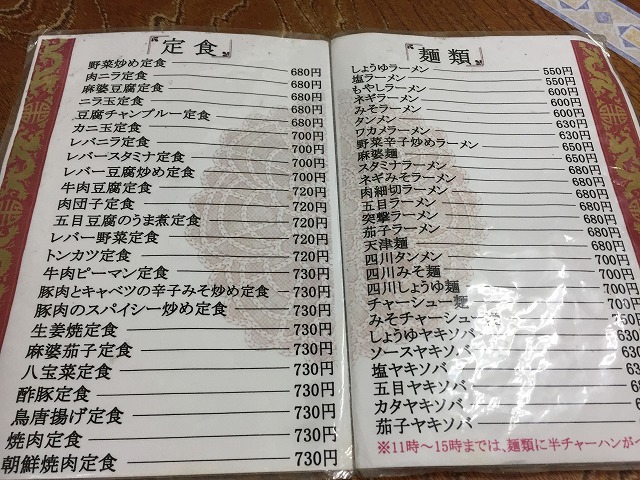 定食
野菜炒め定食
肉ニラ定食 680円
麻婆豆腐定食 680円
ニラ玉定食 680円
豆腐チャンプルー定食 680円
カニ玉定食 680円
レバニラ定食 700円
レバースタミナ定食 700円
レバー豆腐炒め定食 700円
牛肉豆腐定食 720円
肉団子定食 720円
五目豆腐のうま煮定食 720円
レバー野菜定食 720円
トンカツ定食 720円
牛肉ピーマン定食 730円
豚肉とキャベツの辛子みそ炒め定食 730円
豚肉のスパイシー炒め定食 730円
生姜焼定食 730円
麻婆茄子定食 730円
八宝菜定食 730円
酢豚定食 730円
鳥唐揚げ定食 730円
焼肉定食 730円
朝鮮焼肉定食 730円
麺類
しょうゆラーメン 550円
塩ラーメン 550円
もやしラーメン 600円
ネギラーメン 600円
みそラーメン 600円
タンメン 630円
ワカメラーメン 630円
野菜辛子炒めラーメン 650円
麻婆麺 650円
スタミナラーメン 650円
ネギみそラーメン 680円
肉細切りラーメン 680円
五目ラーメン 680円
突撃ラーメン 680円
茄子ラーメン 680円
天津麺 680円
四川タンメン 700円
四川みそ麺 700円
四川しょうゆ麺 700円
チャーシュー麺 700円
みそチャーシュー 750円
しょうゆヤキソバ 630
ソースヤキソバ 630
塩ヤキソバ 630
五目ヤキソバ 680
カタヤキソバ 680
茄子ヤキソバ 680
※11時～15時までは、麺類に半チャーハンが